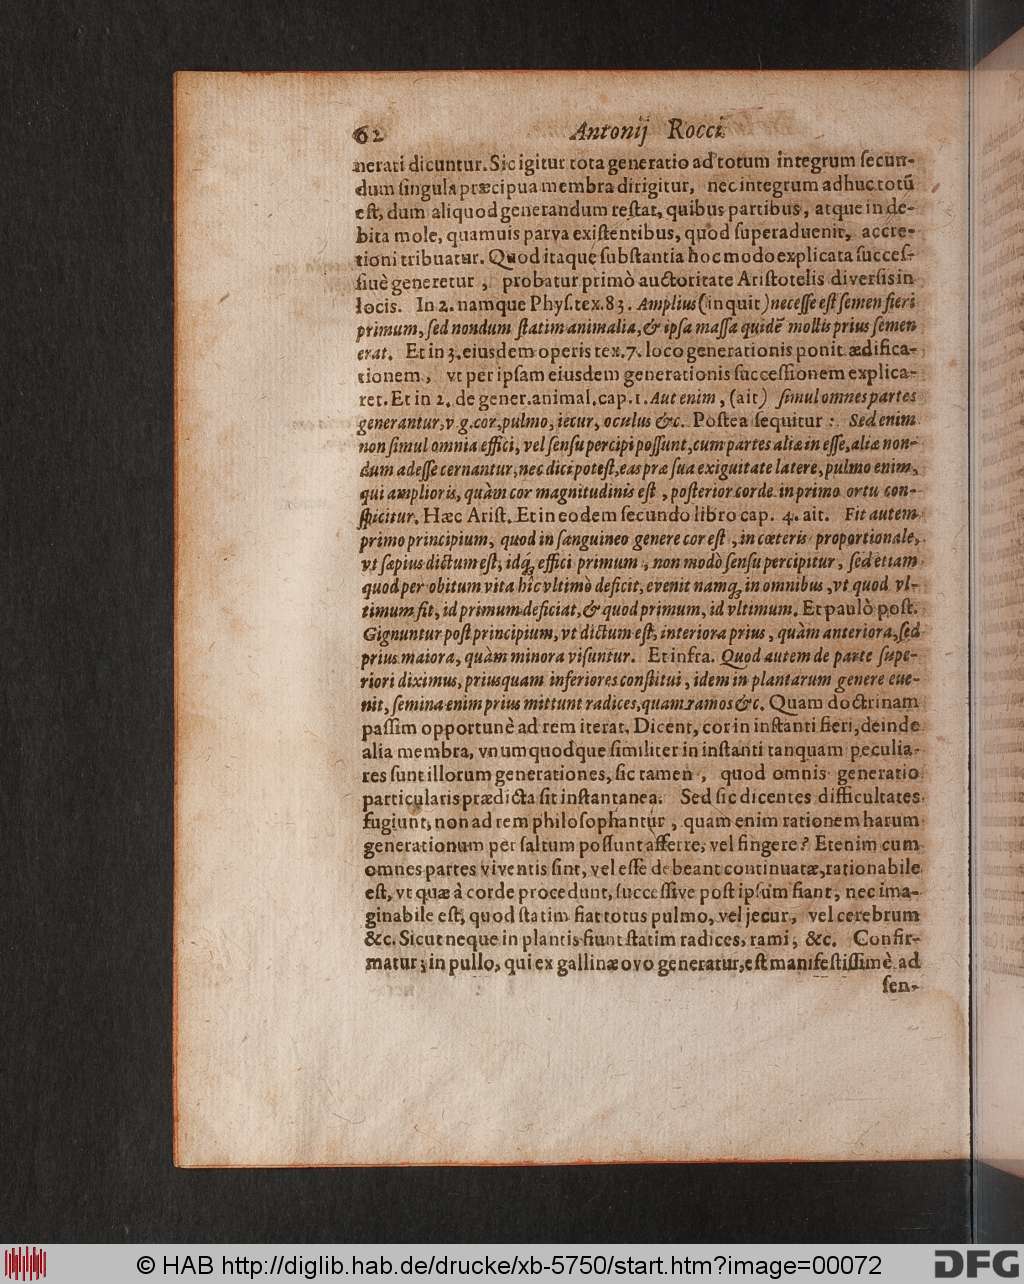 62 Antonij Rocci
nerati dicuntur. Sic igitur tota generatio ad totum integrum ſecun-
dum ſingula præcipua membra dirigitur, nec integrum adhuc totū
eſt, dum aliquod generandum reſtat, quibus partibus, atque in de-
bita mole, quamuis parva exiſtentibus, quod ſuperaduenit, accre-
tioni tribuatur. Quod itaque ſubſtantia hoc modo explicata ſucceſ-
ſiuè generetur, probatur primò auctoritate Ariſtotelis diverſis in
locis. In 2. namque Phyſ. tex. 83. Amplius (inquit) neceſſe eſt ſemen fieri
primum, ſed nondum ſtatim animalia, & ipſa maſſa quidē mollis prius ſemen
erat. Et in 3. eiusdem operis tex. 7. loco generationis ponit ædifica-
tionem, vt per ipſam eiusdem generationis ſucceſſionem explica-
ret. Et in 2. de gener. animal. cap. 1. Aut enim, (ait) ſimul omnes partes
generantur, v. g. cor, pulmo, iecur, oculus &c. Poſtea ſequitur: Sed enim
non ſimul omnia effici, vel ſenſu percipi poſſunt, cum partes aliæ in eſſe, aliæ non-
dum adeſſe cernantur, nec dici poteſt, eas præ ſua exiguitate latere, pulmo enim,
qui amplioris, quàm cor magnitudinis eſt, poſterior corde in primo ortu con-
ſpicitur. Hæc Ariſt. Et in eodem ſecundo libro cap. 4. ait. Fit autem
primo principium, quod in ſanguineo genere cor eſt, in cœteris proportionale,
vt ſapius dictum eſt, idq; effici primum, non modò ſenſu percipitur, ſed etiam
quod per obitum vita hic vltimò deficit, evenit namq; in omnibus, vt quod vl-
timum fit, id primum deficiat, & quod primum, id vltimum. Et paulò poſt.
Gignuntur poſt principium, vt dictum eſt, interiora prius, quàm anteriora, ſed
prius maiora, quàm minora viſuntur. Et infra. Quod autem de parte ſupe-
riori diximus, priusquam inferiores conſtitui, idem in plantarum genere eue-
nit, ſemina enim prius mittunt radices, quam ramos &c. Quam doctrinam
paſſim opportunè ad rem iterat. Dicent, cor in inſtanti fieri, deinde
alia membra, vnumquodque ſimiliter in inſtanti tanquam peculia-
res ſunt illorum generationes, ſic tamen, quod omnis generatio
particularis prædicta ſit inſtantanea. Sed ſic dicentes difficultates
fugiunt, non ad rem philoſophantur, quàm enim rationem harum
generationum per ſaltum poſſunt afferre, vel fingere? Etenim cum
omnes partes viventis ſint, vel eſſe debeant continuatæ, rationabile
eſt, vt quæ à corde procedunt, ſucceſſive poſt ipſum fiant, nec ima-
ginabile eſt, quod ſtatim fiat totus pulmo, vel jecur, vel cerebrum
&c. Sicut neque in plantis fiunt ſtatim radices, rami, &c. Confir-
matur; in pullo, qui ex gallinæ ovo generatur, eſt manifeſtiſſimè ad
ſen-
© HAB http://diglib.hab.de/drucke/xb-5750/start.htm?image=00072
DFG